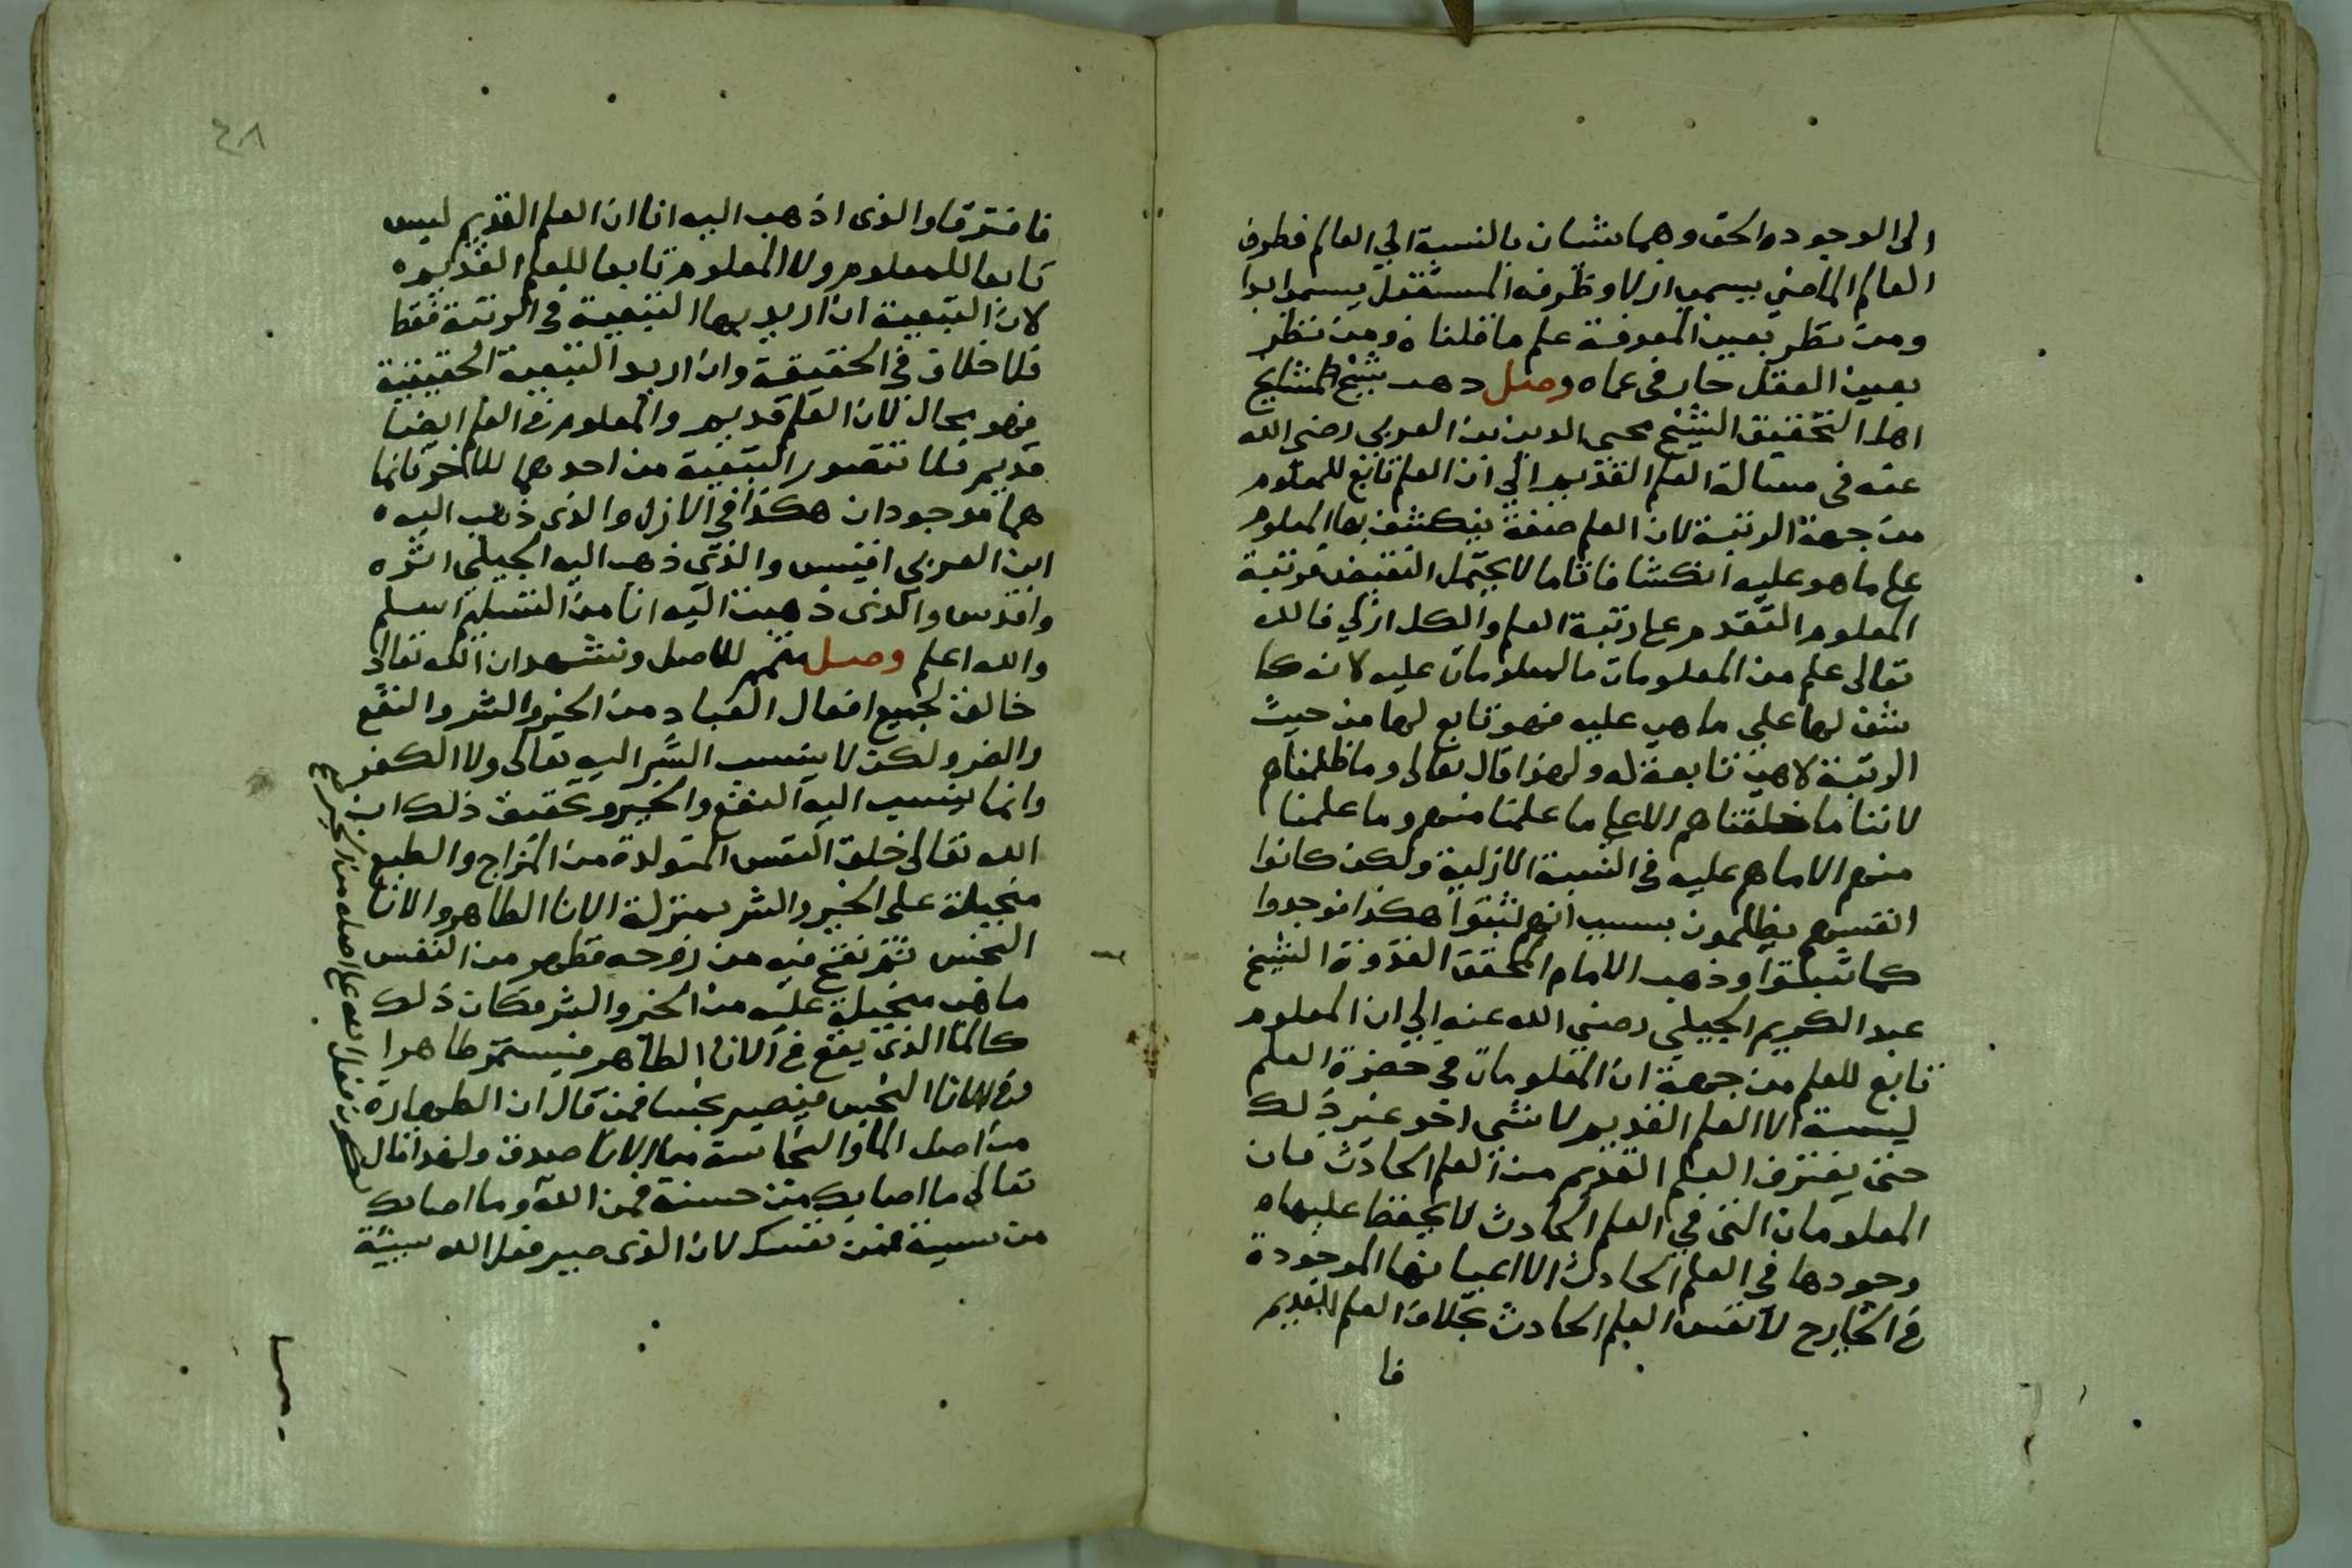 الى الوجوده الحق وهما شيئان بالنسبة الي العالم فطرف
العالم الماضي يسمى ازلا وظرفه المستقبل يسمى ابدا
ومن نظر بعين المعرفة علم ما قلناه ومن نظر
بعين العقل حار في عماه وصل ذهب شيخ المشايخ
اهل التحقيق الشيخ محيى الدين بن العربي رضي الله
عنه في مسالة العلم القديم الي ان العلم تابع للمعلوم
من جهة الرتبة لان العلم صفة ينكشف بها المعلوم
على ما هو عليه انكشافا تاما لا يحتمل النقيض فرتبة
المعلوم التقدم على رتبة العلم والكل ازلي فالله
تعالى علم من المعلومات ما المعلومات عليه لانه كا
شف لها علي ما هي عليه فهو تابع لها من حيث
الرتبة لا هي تابعة له ولهذا قال تعالى وما ظلمناهم
لاننا ما خلقناهم الا على ما علمنا منهم وما علمنا
منهم الا ما هم عليه في النسبة الازلية ولكن كانوا
انفسهم يظلمون بسبب انهم ثبتوا هكذا فوجدوا
كما ثبتوا وذهب الامام المحقق القدوة الشيخ
عبد الكريم الجيلي رضي الله عنه الي ان المعلوم
تابع للعلم من جهة ان المعلومات في حضرة العلم
ليست الا العلم القديم لا شي اخر غير ذلك
حتى يفترق العلم القديم من العلم الحادث فان
المعلومات التى في العلم الحادث لا يحفظ عليهاه
وجودها في العلم الحادث الا اعيانها الموجودة
في الخارج لا نفس العلم الحادث بخلاف العلم القديم
فا
٤٨
فافترقا والذى اذهب اليه انا ان العلم القديم ليس
تابعا للمعلوم ولا المعلوم تابعا للعلم القديمه
لان التبعية ان اريد بها التبعية في الرتبة فقط
فلا خلاف في الحقيقة وان اريد التبعية الحقيقية
فهو محال لان العلم قديم والمعلوم في العلم ايضا
قديم فلا تتصور التبعية من احدهما للاخر فانما
هما موجودان هكذا في الازل والذى ذهب اليه ه
ابن العربي اقيس والذي ذهب اليه الجيلي انزه
واقدس والذى ذهبت اليه انا من التسليم اسلم
والله اعلم وصل متمم للاصل ونشهد ان الله تعالى
خالق لجميع افعال العباد من الخير والشر والنفع
والضر ولكن لا ينسب الشر اليه تعالى ولا الكفر
وانما ينسب اليه النفع والخير وتحقيق ذلك ان
الله تعالى خلق النفس المتولدة من المزاج والطبع
منجبلة على الخير والشر بمنزلة الانا الطاهر والانا
النجس ثم نفخ فيه من روحه فظهر من النفس
ما هي منجبلة عليه من الخير والشر فكان ذلك
كالما الذي يقع في الانا الطاهر فيستمر طاهرا
وفي الانا النجس فيصير نجسا فمن قال ان الطهارة
من اصل الما والنجاسة من الانا صدق ولهذا قال
تعالى ما اصابك من حسنة فمن الله وما اصابك
من سيئة فمن نفسك لان الذى صير فعل الله سيئة
فعل الله على اصله من الخير